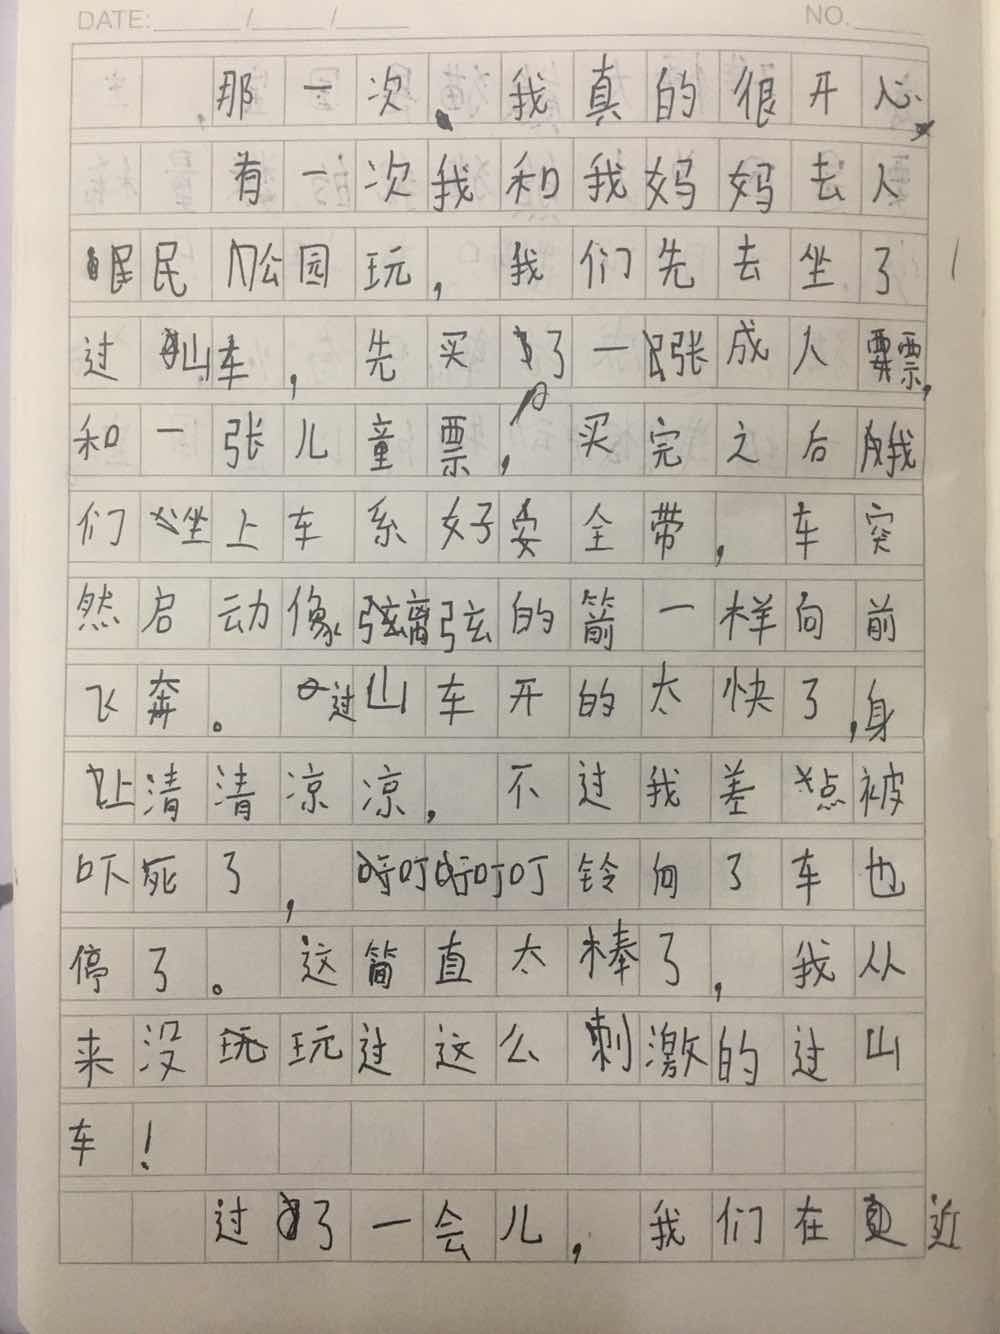 DATE: / / NO.
那一次，我真的很开心，
有一次我和我妈妈去人
民公园玩，我们先去坐了
过山车，先买了一张成人票，
和一张儿童票，买完之后我
们坐上车系好安全带，车突
然启动像离弦的箭一样向前
飞奔。过山车开的太快了，身
上清清凉凉，不过我差点被
吓死了，叮叮叮铃向了车也
停了。这简直太棒了，我从
来没玩过这么刺激的过山
车！
过了一会儿，我们在更近